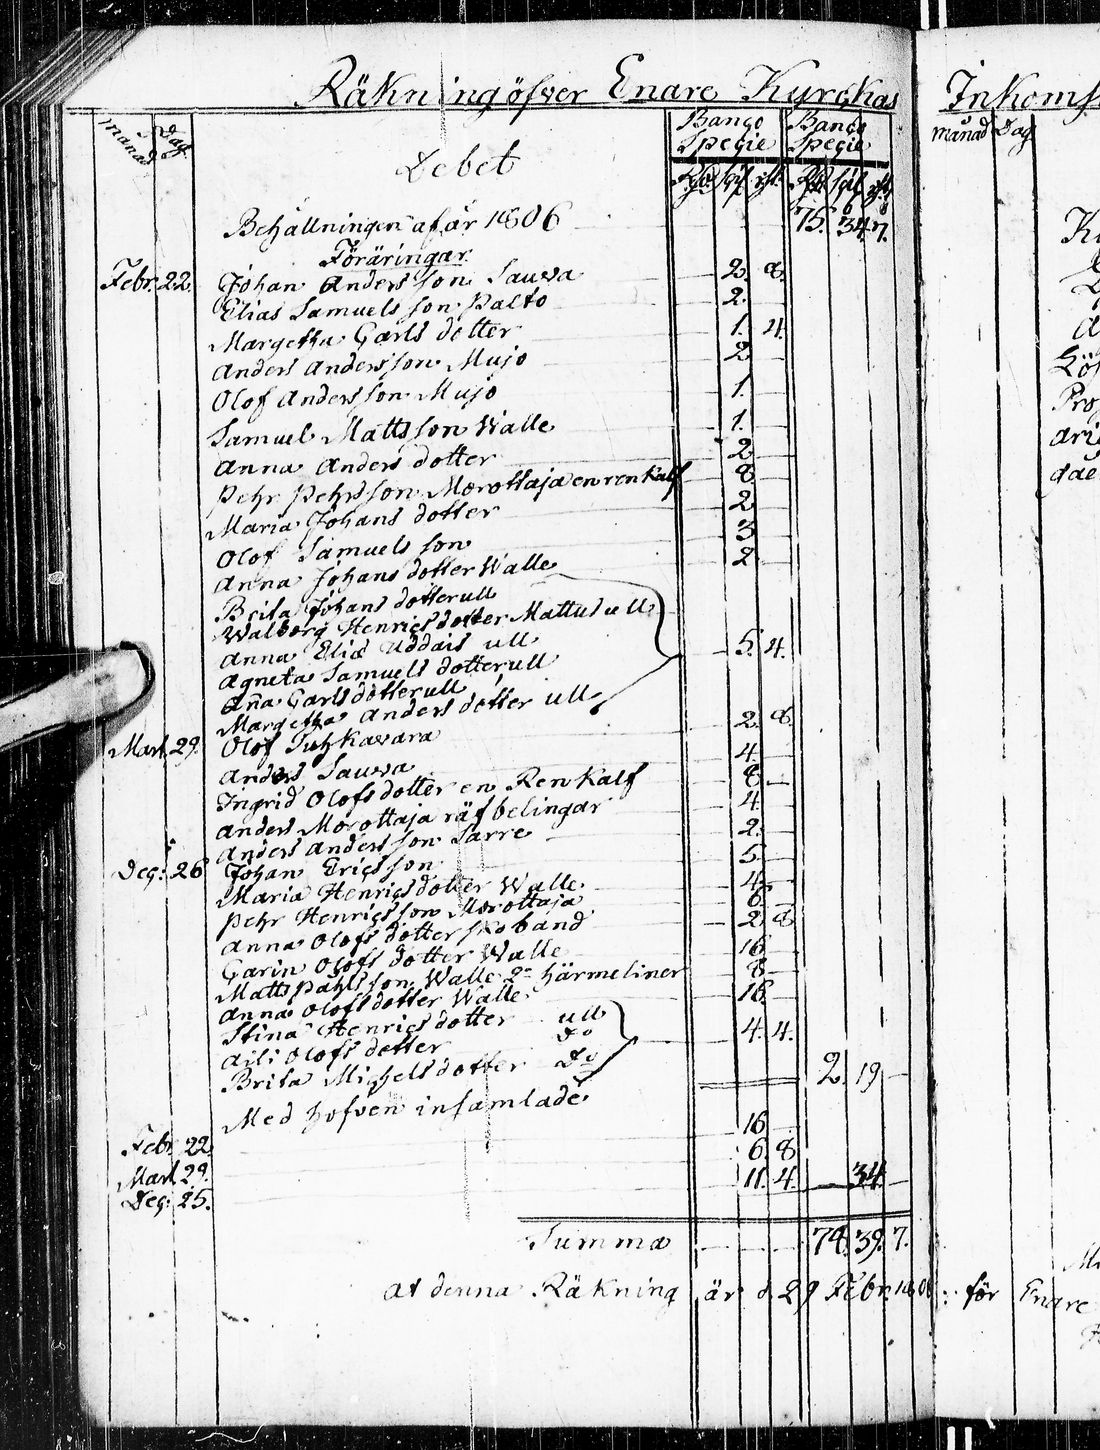 Räkning öfver Enare Kyrckas
månad Dag
Debet
Banco Specie
Banco Specie
Behållningen af år 1806 75. 34. 7.
Föräringar
Febr. 22. Johan Andersson Sauva 2. 8.
Elias Samuelsson Palto 2.
Margetha Carls dotter 1. 4.
Anders Andersson Mujo 2
Olof Andersson Mujo 1.
Samuel Mattsson Walle 1.
Anna Anders dotter 2
Pehr Pehrsson Morottaja en ren Kalf 8
Maria Johans dotter 2
Olof Samuelsson 3
Anna Johans dotter Walle 2
Brita Johans dotter ull
Walborg Henrics dotter Mattus ull
Anna Elias Uddais ull 5. 4.
Agneta Samuels dotter ull
Aña Carls dotter ull
Margetha Anders dotter ull
Mart. 29. Olof Tuhkavara 2. 8
Anders Sauva 4.
Ingrid Olofs dotter en Ren Kalf 8
Anders Morottaja räfbelingar 4.
Anders Andersson Sarre 2.
Dec: 26 Johan Ericsson 5.
Maria Henrics dotter Walle 4
Pehr Henricsson Morottaja 6.
Anna Olofs dotter skoband 2. 8
Carin Olofs dotter Walle 16
Matts Påhlsson Walle 2 härmeliner 8
Anna Olofs dotter Walle 16
Stina Henrics dotter ull
Aili Olofs dotter do 4. 4.
Brita Michels dotter Do
2. 19
Med hofven insamlade
Febr 22 16
Mart 29. 6. 8
Dec: 25. 11. 4. 34.
Summa 74. 39. 7.
At denna Räkning är d. 29 Febr. 1808 för Enare
Inkomst
månad Dag